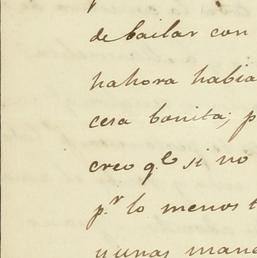 de bailar con
hahora habia
cesa bonita, p
creo q.e si no
p.r lo menos t
y unas mane